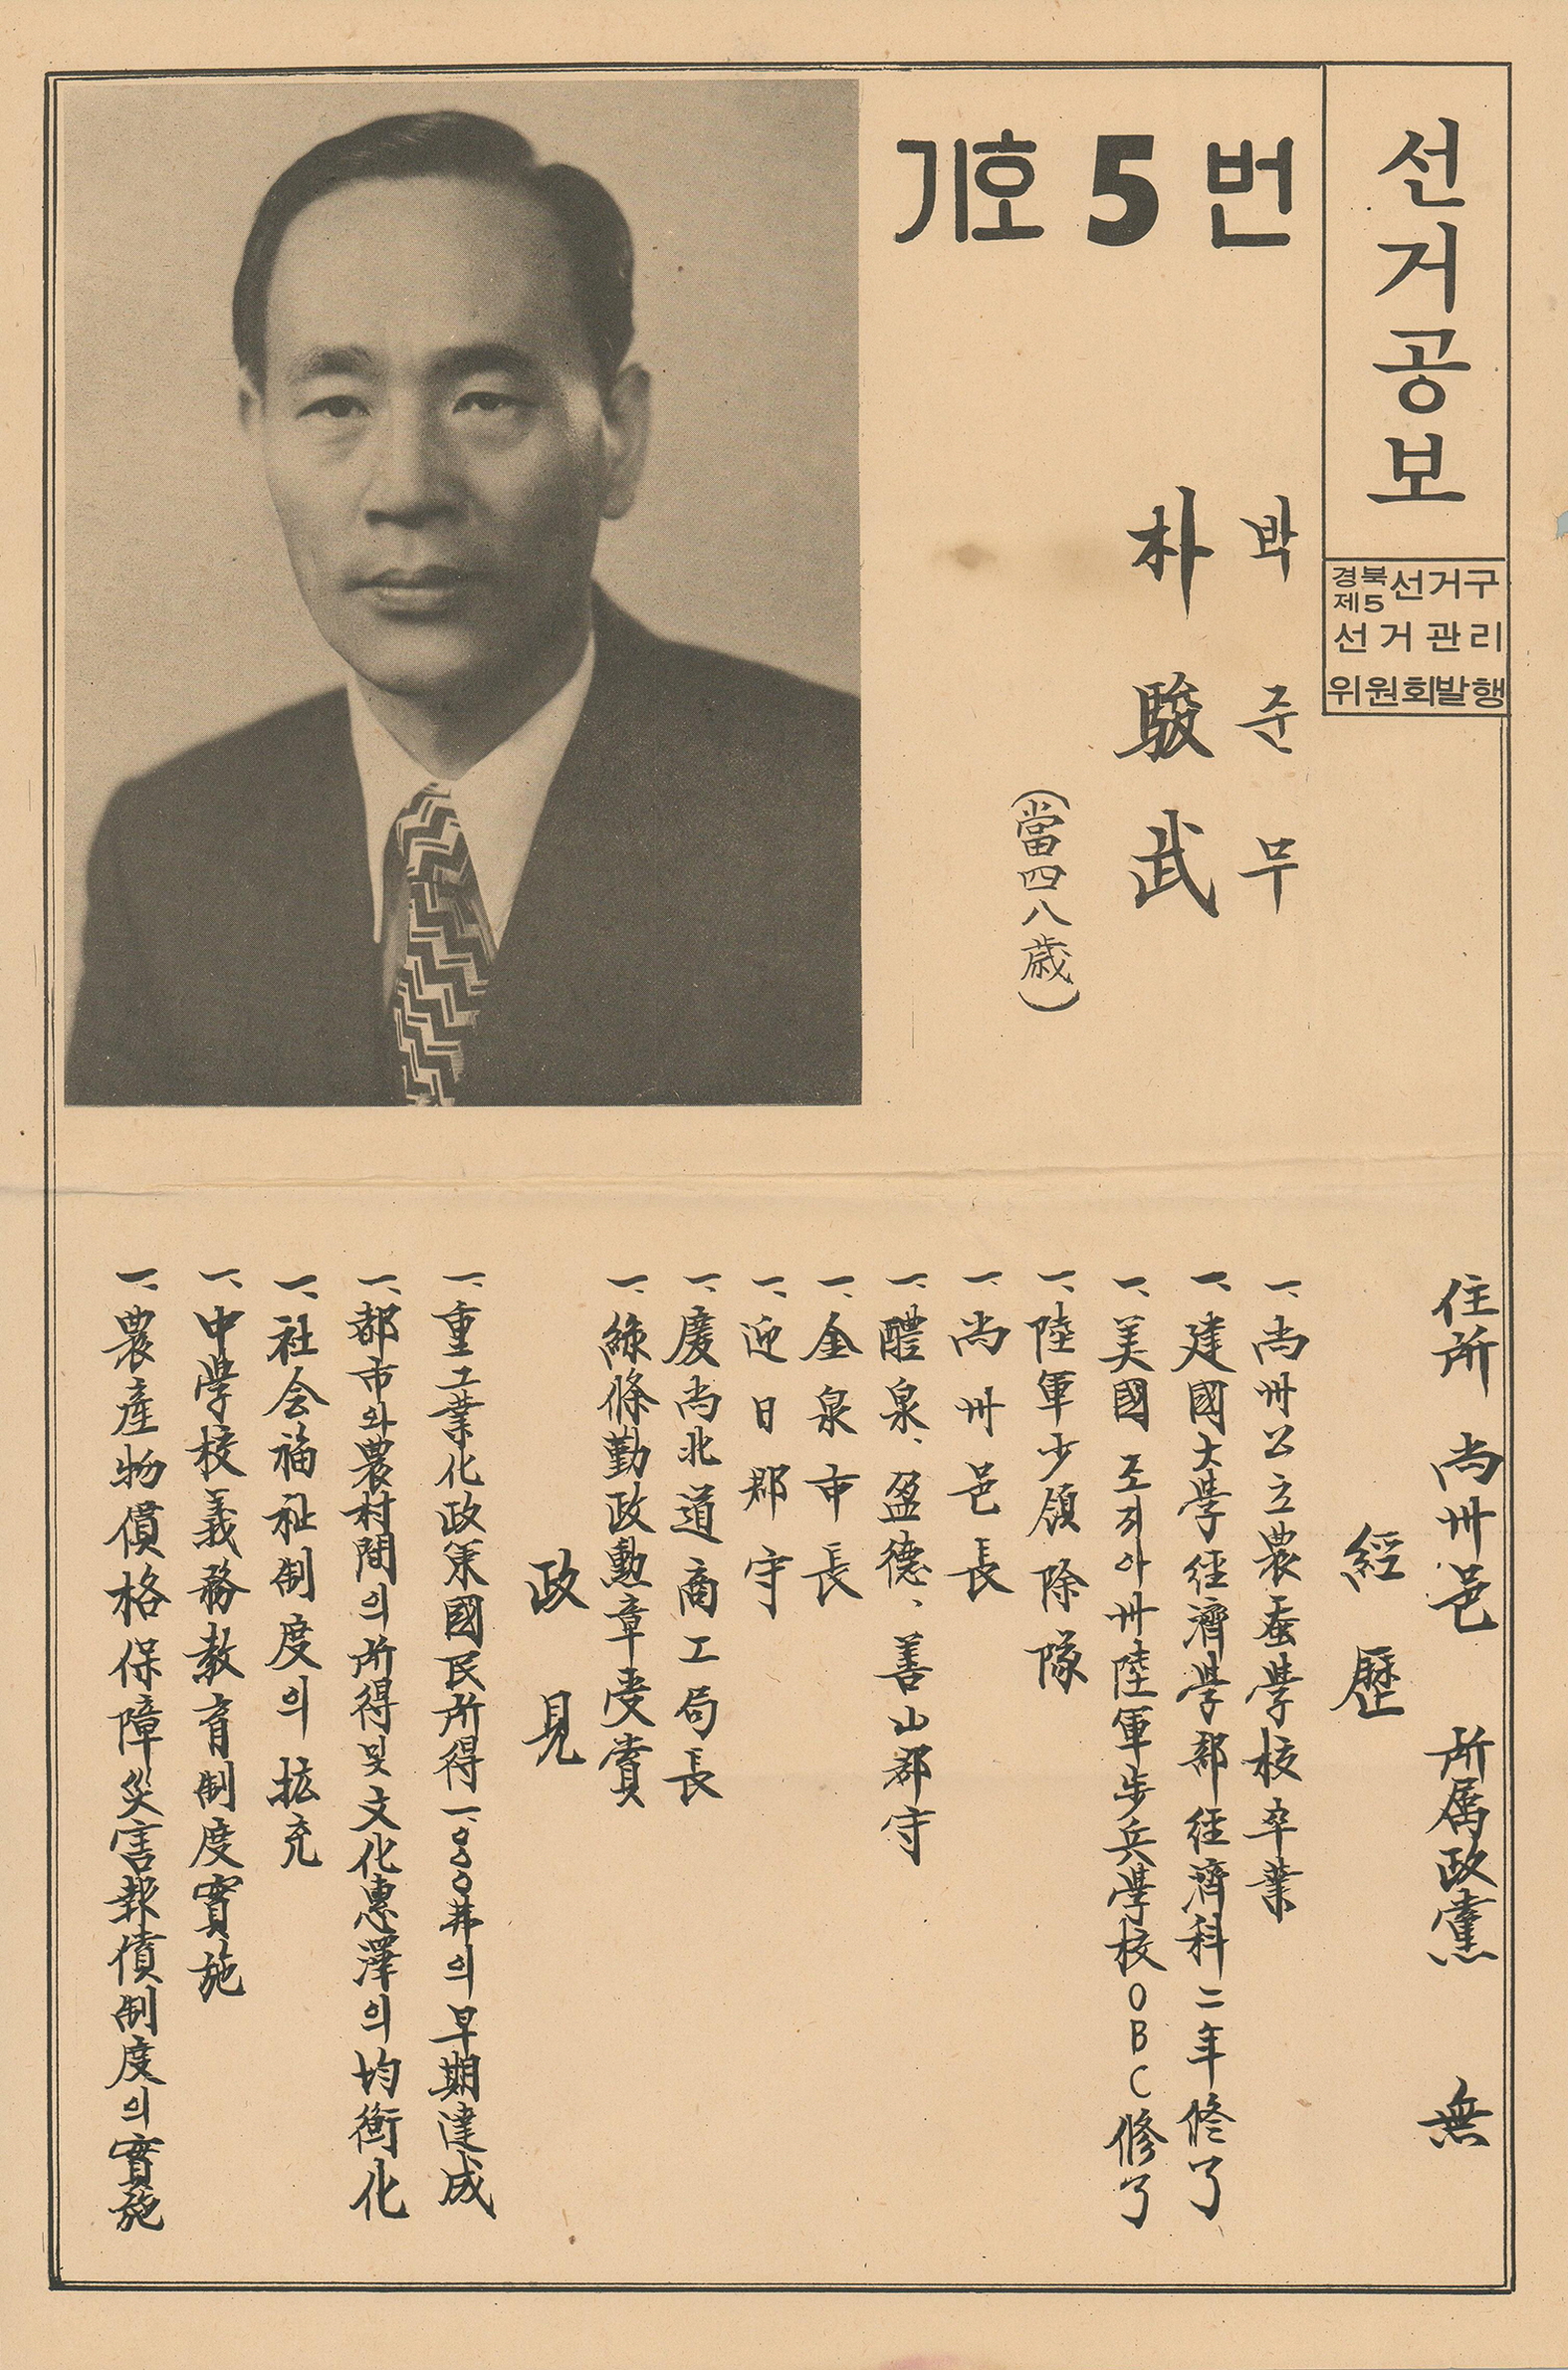 선거공보
경북 제5 선거구
선거관리
위원회발행
기호 5 번
박준무
朴駿武
(當四八歲)
住所 尚州邑 所属政黨 無
經歷
一、尚州公立農蚕學校卒業
一、建國大學経濟學部経濟科二年修了
一、美國 조지아州陸軍步兵學校OBC修了
一、陸軍少領除隊
一、尚州邑長
一、醴泉、盈德、善山郡守
一、金泉市長
一、迎日郡守
一、慶尚北道商工局長
一、綠條勤政勳章受賞
政見
一、重工業化政策國民所得一、〇〇〇弗의早期達成
一、都市와農村間의所得및文化惠澤의均衡化
一、社会福祉制度의拡充
一、中学校義務敎育制度實施
一、農產物價格保障災害報償制度의實施